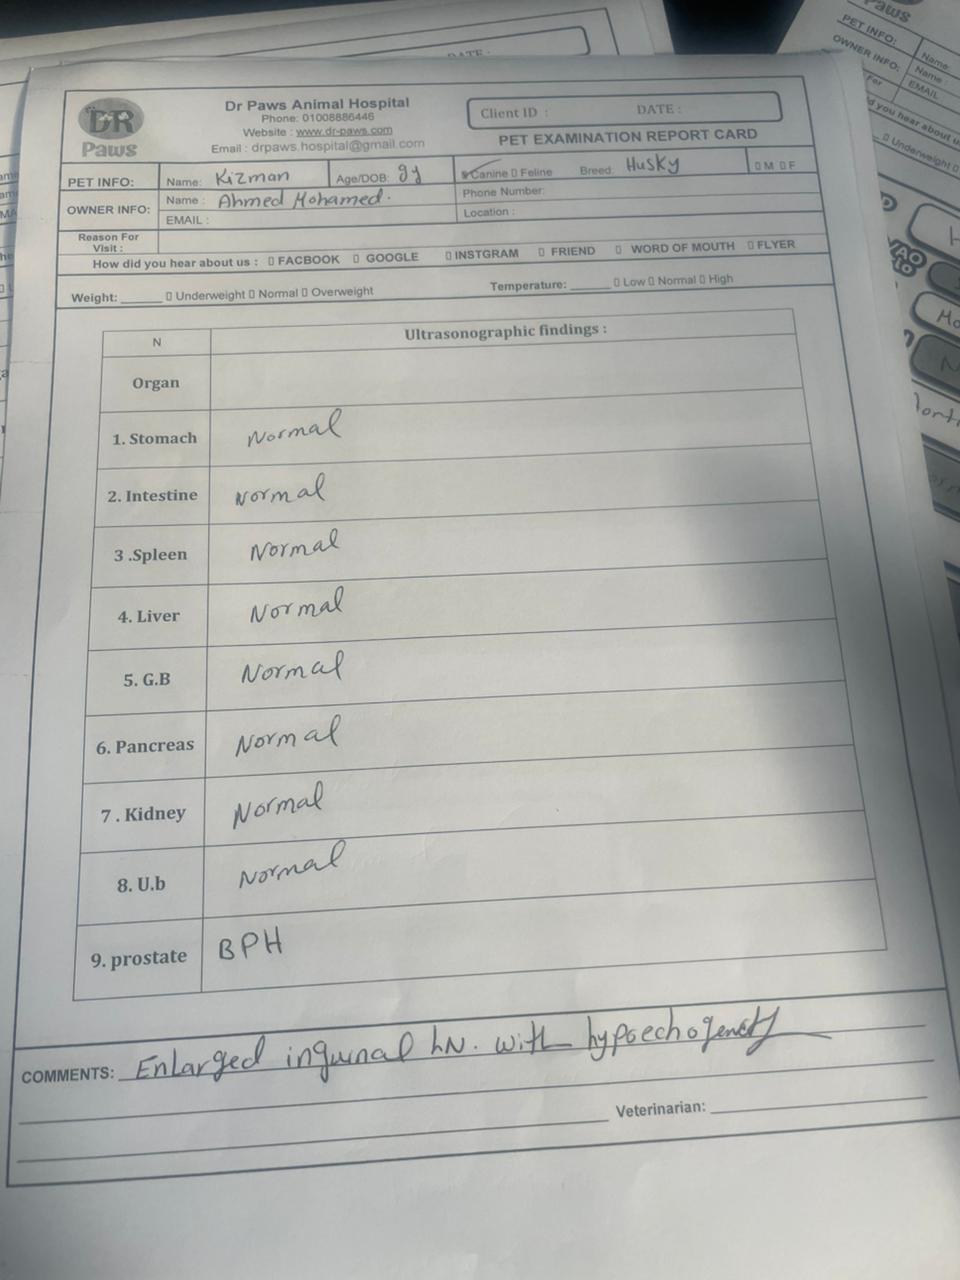 DR
Paws
Dr Paws Animal Hospital
Phone: 01008886446
Website : www.dr-paws.com
Email : drpaws.hospital@gmail.com
Client ID : DATE :
PET EXAMINATION REPORT CARD
PET INFO: Name: Kizman Age/DOB: 9y Canine Feline Breed: Husky M F
OWNER INFO: Name : Ahmed Mohamed. Phone Number:
EMAIL : Location :
Reason For
Visit :
How did you hear about us : FACBOOK GOOGLE INSTGRAM FRIEND WORD OF MOUTH FLYER
Weight: Underweight Normal Overweight Temperature: Low Normal High
N Ultrasonographic findings :
Organ
1. Stomach Normal
2. Intestine Normal
3 .Spleen Normal
4. Liver Normal
5. G.B Normal
6. Pancreas Normal
7 . Kidney Normal
8. U.b Normal
9. prostate BPH
COMMENTS: Enlarged inguinal LN. with
Veterinarian:
DATE :
Paws
PET INFO: Name:
OWNER INFO: Name :
EMAIL
For
d you hear about us
Underweight